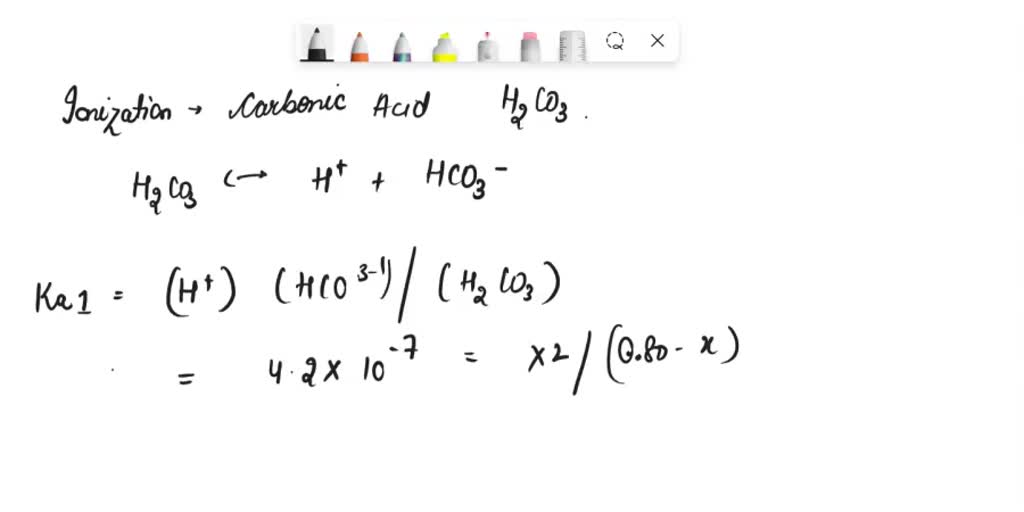 Ionization → Carbonic Acid H2CO3.
H2CO3 ↔ H+ + HCO3-
Ka1 = (H+) (HCO3-1) / (H2CO3)
= 4.2 x 10-7 = x2 / (0.80 - x)